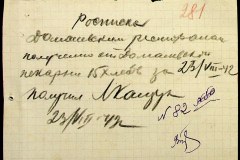 281
Росписка
Домашевский ресторан
получено от Домашевской
пекарни 15 хлеба за 23/VIII-42
получил
23/VIII-42
N 82